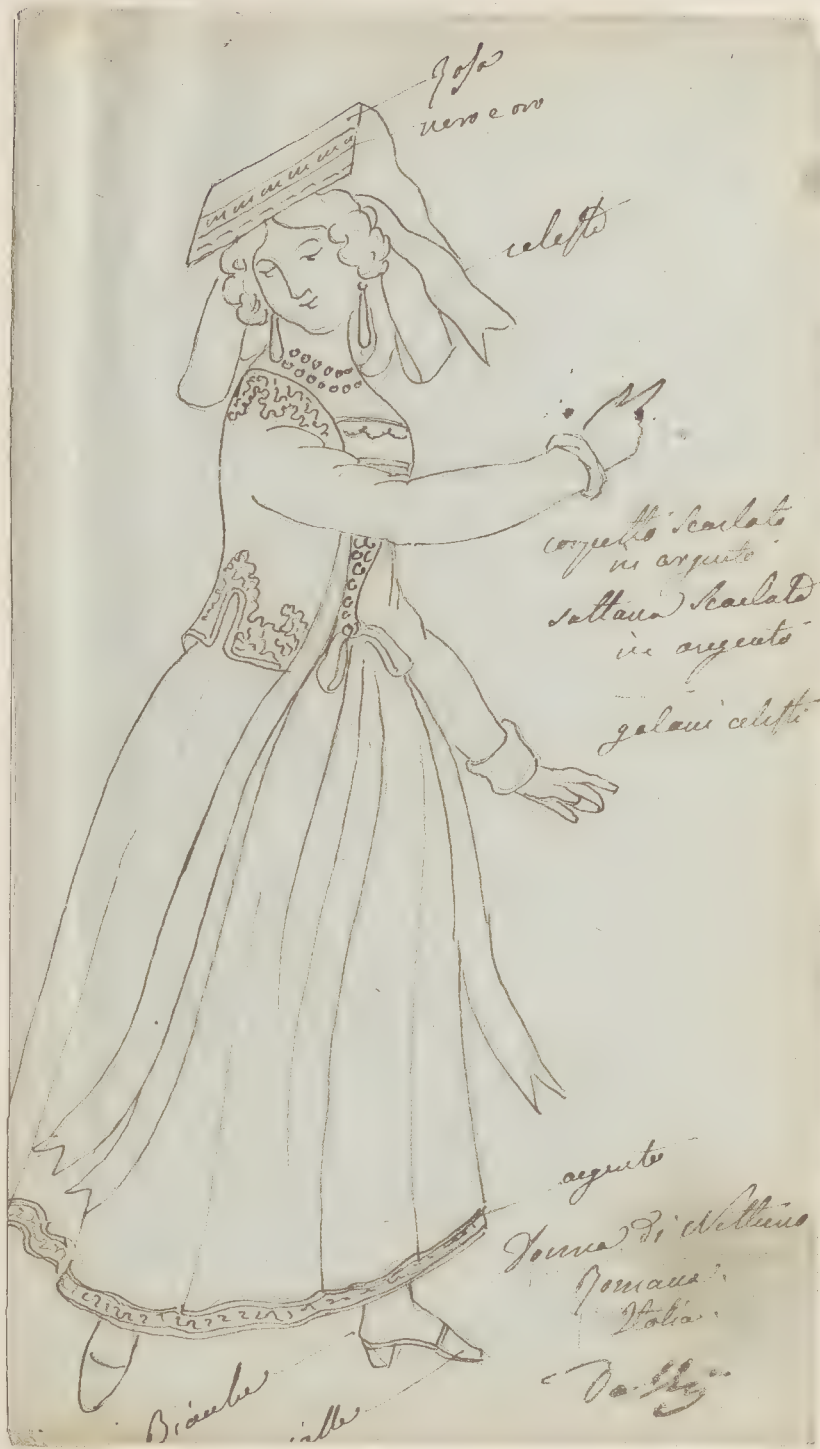 Rosa
nero e oro
celeste
corpetto scarlato
in argento
sottana scarlata
in argento
galani celesti
argento
Donna di Nettuno
Romana.
Italia.
Bianche